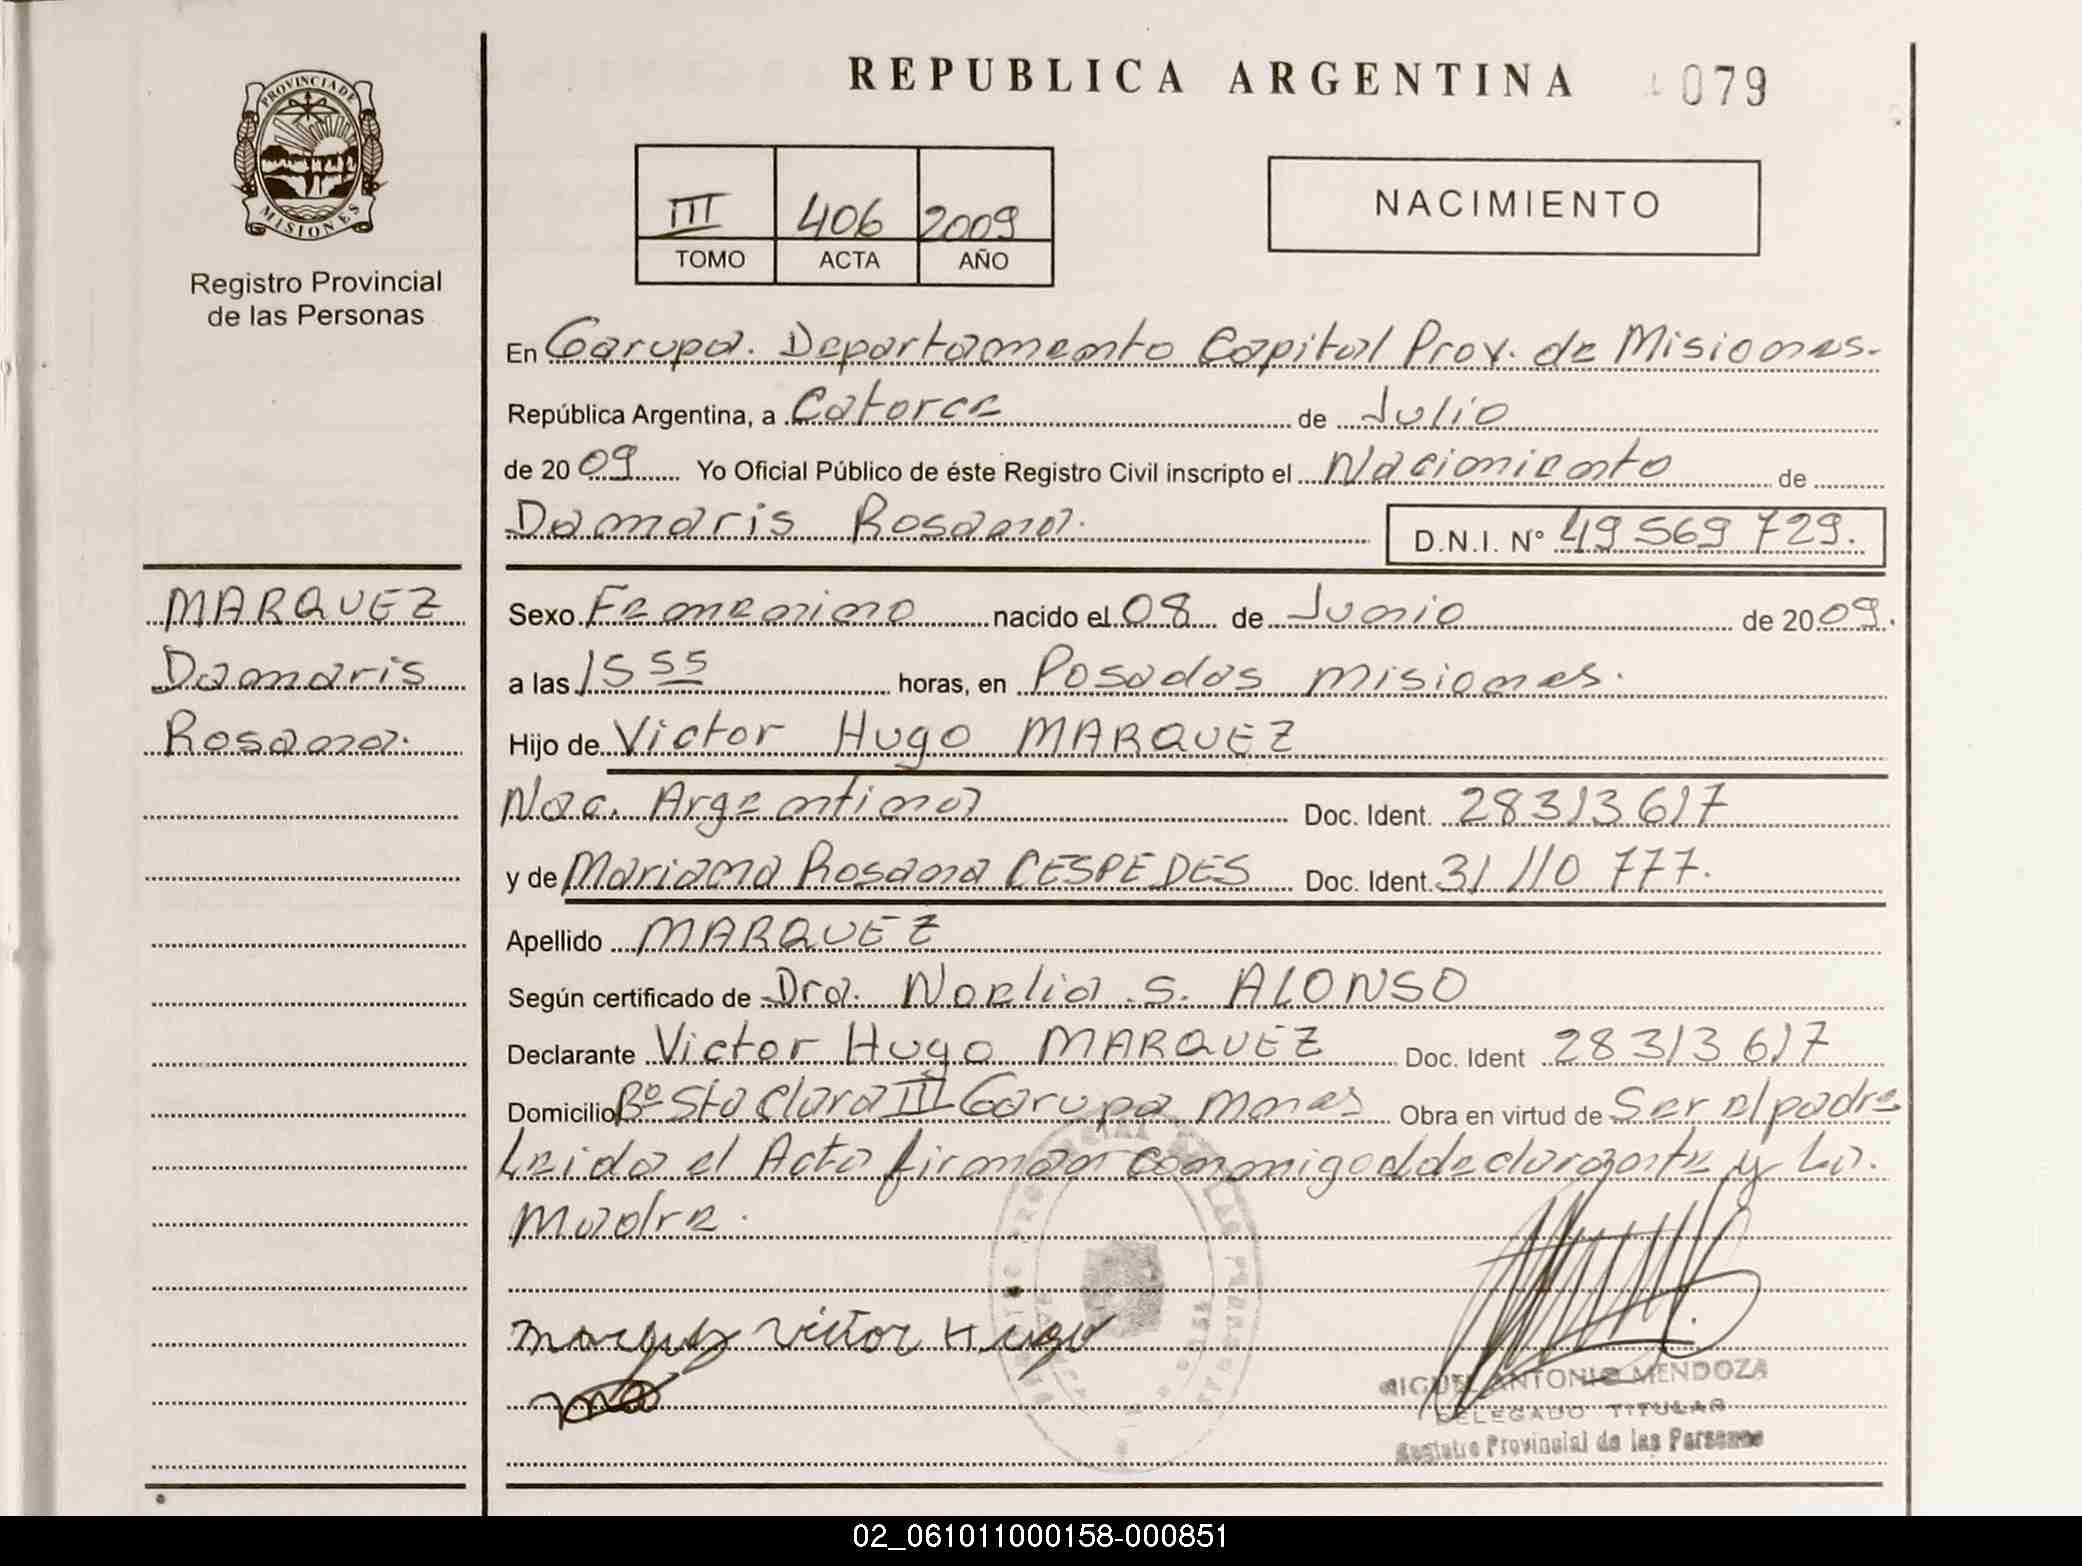 REPUBLICA ARGENTINA 079
PROVINCIA DE
MISIONES
Registro Provincial
de las Personas
III 406 2009
TOMO ACTA AÑO
NACIMIENTO
En Garupa. Departamento Capital Prov. de Misiones.
República Argentina, a Catorce de Julio
de 2009 Yo Oficial Público de éste Registro Civil inscripto el Nacimiento de
Damaris Rosana. D.N.I. N° 49 569 729.
MARQUEZ
Damaris
Rosana.
Sexo Femenino nacido el 08 de Junio de 2009.
a las 15 55 horas, en Posadas Misiones.
Hijo de Victor Hugo MARQUEZ
Nac. Argentina Doc. Ident. 28313617
y de Mariana Rosana CESPEDES Doc. Ident. 31 110 777.
Apellido MARQUEZ
Según certificado de Dra. Noelia S. ALONSO
Declarante Victor Hugo MARQUEZ Doc. Ident 28313617
Domicilio Bº Sta Clara III Garupa Mnes Obra en virtud de Ser el padre
Leida el Acta firman conmigo el declarante y La.
Madre.
Marquez Victor Hugo
MIGUEL ANTONIO MENDOZA
DELEGADO TITULAR
Registro Provincial de las Personas
02_061011000158-000851